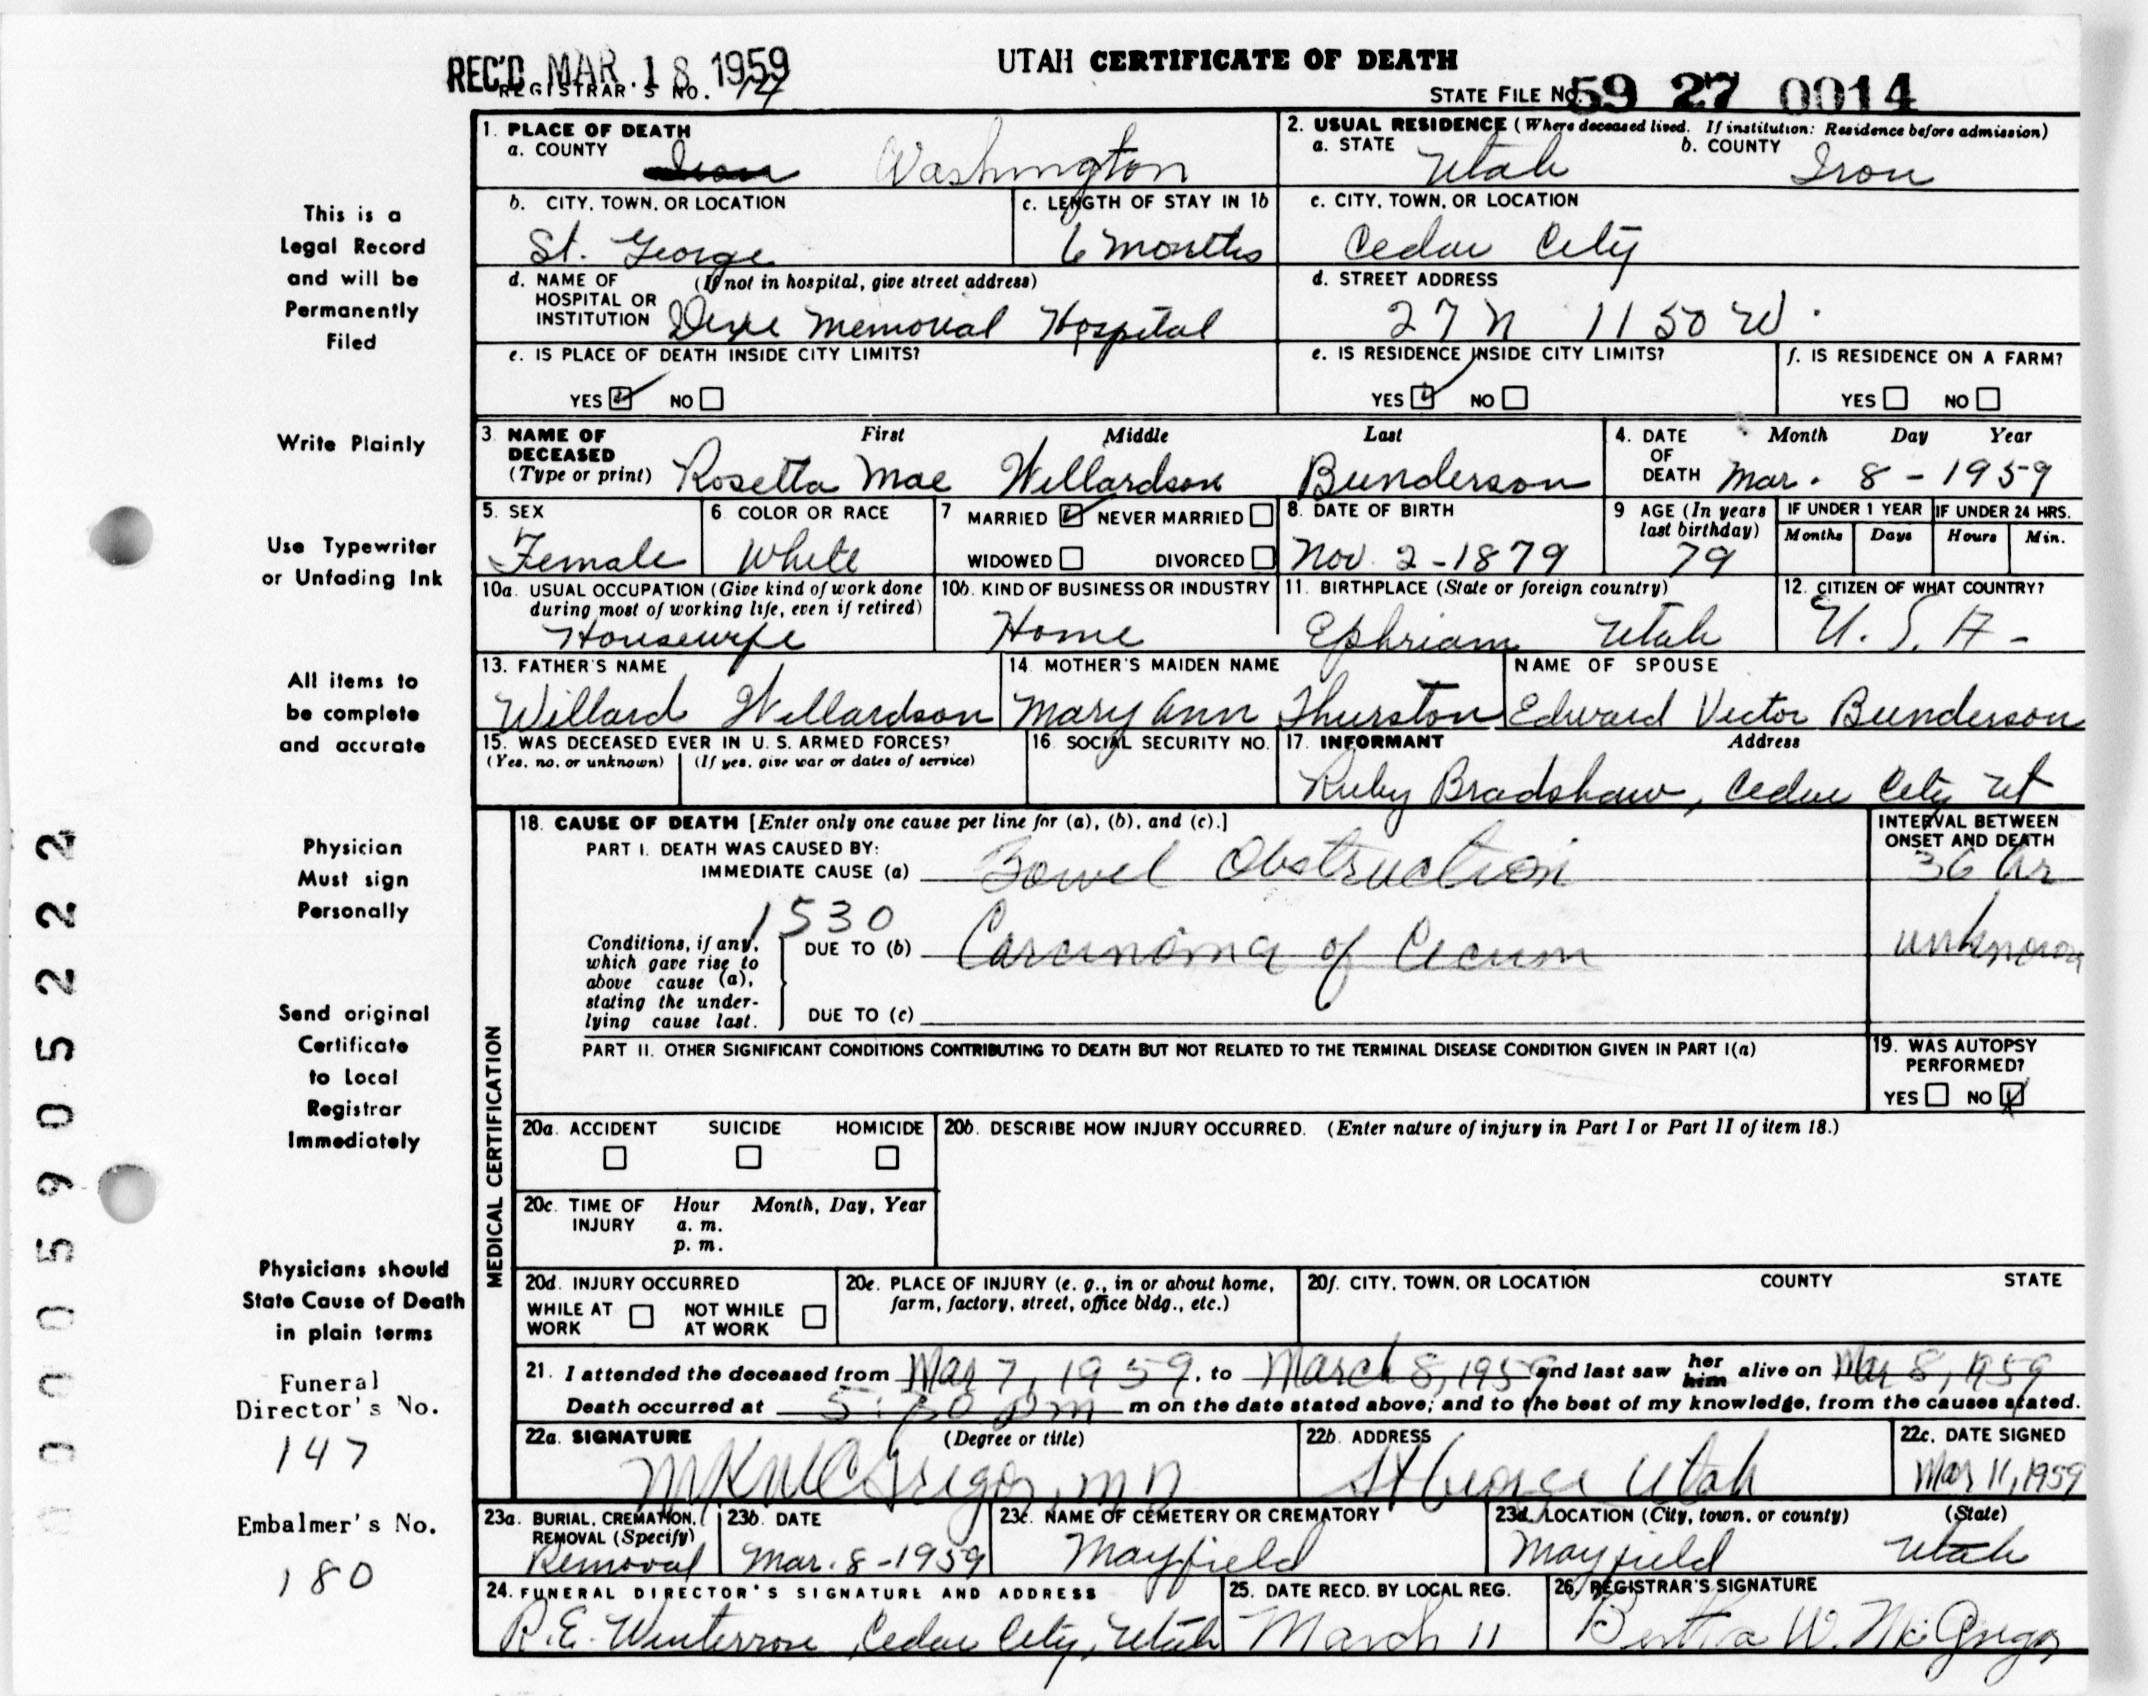 REC'D. MAR 18 1959
UTAH CERTIFICATE OF DEATH
REGISTRAR'S NO. 17
STATE FILE NO. 59 27 0014
1. PLACE OF DEATH
a. COUNTY Iron Washington
2. USUAL RESIDENCE (Where deceased lived. If institution: Residence before admission)
a. STATE Utah b. COUNTY Iron
b. CITY, TOWN, OR LOCATION
St. George
c. LENGTH OF STAY IN 1b
6 months
c. CITY, TOWN, OR LOCATION
Cedar City
d. NAME OF HOSPITAL OR INSTITUTION (If not in hospital, give street address)
Dixie Memorial Hospital
d. STREET ADDRESS
27 N 1150 W.
e. IS PLACE OF DEATH INSIDE CITY LIMITS?
YES NO
e. IS RESIDENCE INSIDE CITY LIMITS?
YES NO
f. IS RESIDENCE ON A FARM?
YES NO
3. NAME OF DECEASED (Type or print)
First Middle Last
Rosetta Mae Willardson Bunderson
4. DATE OF DEATH Month Day Year
Mar. 8 - 1959
5. SEX
Female
6. COLOR OR RACE
White
7 MARRIED NEVER MARRIED
WIDOWED DIVORCED
8. DATE OF BIRTH
Nov. 2 - 1879
9 AGE (In years last birthday)
79
IF UNDER 1 YEAR
Months Days
IF UNDER 24 HRS.
Hours Min.
10a. USUAL OCCUPATION (Give kind of work done during most of working life, even if retired)
Housewife
10b. KIND OF BUSINESS OR INDUSTRY
Home
11. BIRTHPLACE (State or foreign country)
Ephriam Utah
12. CITIZEN OF WHAT COUNTRY?
U. S. A -
13. FATHER'S NAME
Willard Willardson
14. MOTHER'S MAIDEN NAME
Mary Ann Thurston
NAME OF SPOUSE
Edward Victor Bunderson
15. WAS DECEASED EVER IN U. S. ARMED FORCES?
(Yes, no, or unknown) (If yes, give war or dates of service)
16. SOCIAL SECURITY NO.
17. INFORMANT Address
Ruby Bradshaw, Cedar City Ut
18. CAUSE OF DEATH [Enter only one cause per line for (a), (b), and (c).]
INTERVAL BETWEEN ONSET AND DEATH
PART I. DEATH WAS CAUSED BY:
IMMEDIATE CAUSE (a) Bowel Obstruction 36 hr
1530
Conditions, if any, which gave rise to above cause (a), stating the underlying cause last.
DUE TO (b) Carcinoma of Cecum unknown
DUE TO (c)
PART II. OTHER SIGNIFICANT CONDITIONS CONTRIBUTING TO DEATH BUT NOT RELATED TO THE TERMINAL DISEASE CONDITION GIVEN IN PART I(a)
19. WAS AUTOPSY PERFORMED?
YES NO
20a. ACCIDENT SUICIDE HOMICIDE
20b. DESCRIBE HOW INJURY OCCURRED. (Enter nature of injury in Part I or Part II of item 18.)
20c. TIME OF INJURY Hour Month, Day, Year
a. m.
p. m.
20d. INJURY OCCURRED
WHILE AT WORK NOT WHILE AT WORK
20e. PLACE OF INJURY (e. g., in or about home, farm, factory, street, office bldg., etc.)
20f. CITY, TOWN, OR LOCATION COUNTY STATE
21. I attended the deceased from Mar 7, 1959, to March 8, 1959 and last saw her him alive on Mar 8, 1959
Death occurred at 5:30 pm m on the date stated above; and to the best of my knowledge, from the causes stated.
22a. SIGNATURE (Degree or title)
M K McGregor, MD
22b. ADDRESS
St George Utah
22c. DATE SIGNED
Mar 11, 1959
23a. BURIAL, CREMATION, REMOVAL (Specify)
Removal
23b. DATE
Mar. 8 - 1959
23c. NAME OF CEMETERY OR CREMATORY
Mayfield
23d. LOCATION (City, town, or county) (State)
Mayfield Utah
24. FUNERAL DIRECTOR'S SIGNATURE AND ADDRESS
R. E. Winterrose, Cedar City, Utah
25. DATE RECD. BY LOCAL REG.
March 11
26. REGISTRAR'S SIGNATURE
Bertha W. McGregor
MEDICAL CERTIFICATION
This is a
Legal Record
and will be
Permanently
Filed
Write Plainly
Use Typewriter
or Unfading Ink
All items to
be complete
and accurate
Physician
Must sign
Personally
Send original
Certificate
to Local
Registrar
Immediately
Physicians should
State Cause of Death
in plain terms
Funeral
Director's No.
147
Embalmer's No.
180
00005905222